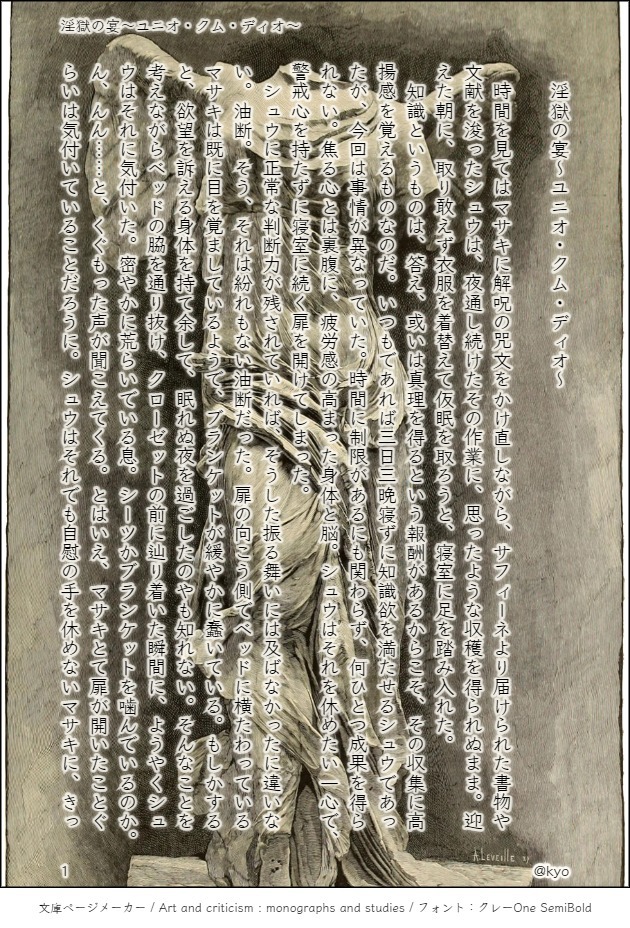 淫獄の宴～ユニオ・クム・ディオ～
淫獄の宴～ユニオ・クム・ディオ～
時間を見てはマサキに解呪の呪文をかけ直しながら、サフィーネより届けられた書物や
文献を浚ったシュウは、夜通し続けたその作業に、思ったような収穫を得られぬまま。迎
えた朝に、取り敢えず衣服を着替えて仮眠を取ろうと、寝室に足を踏み入れた。
知識というものは、答え、或いは真理を得るという報酬があるからこそ、その収集に高
揚感を覚えるものなのだ。いつもであれば三日三晩寝ずに知識欲を満たせるシュウであっ
たが、今回は事情が異なっていた。時間に制限があるにも関わらず、何ひとつ成果を得ら
れない。焦る心とは裏腹に、疲労感の高まった身体と脳。シュウはそれを休めたい一心で、
警戒心を持たずに寝室に続く扉を開けてしまった。
シュウに正常な判断力が残されていれば、そうした振る舞いには及ばなかったに違いな
い。油断。そう、それは紛れもない油断だった。扉の向こう側でベッドに横たわっている
マサキは既に目を覚ましているようで、ブランケットが緩やかに蠢いている。もしかする
と、欲望を訴える身体を持て余して、眠れぬ夜を過ごしたのやも知れない。そんなことを
考えながらベッドの脇を通り抜け、クローゼットの前に辿り着いた瞬間に、ようやくシュ
ウはそれに気付いた。密やかに荒らいでいる息。シーツかブランケットを噛んでいるのか。
ん、んん……と、くぐもった声が聞こえてくる。とはいえ、マサキとて扉が開いたことぐ
らいは気付いていることだろうに。シュウはそれでも自慰の手を休めないマサキに、きっ
A.LEVEILLE
1
@kyo
文庫ページメーカー / Art and criticism : monographs and studies / フォント：クレーOne SemiBold